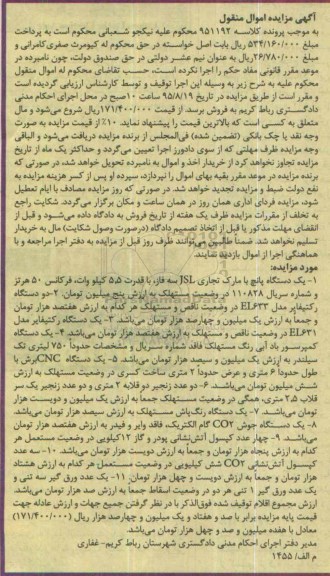 آگهی مزایده اموال منقول
به موجب پرونده کلاسه ۹۵۱۱۹۲ محکوم علیه نیکجو شعبانی محکوم است به پرداخت
مبلغ ۵۳۴/۱۶۰/۰۰۰ ریال بابت اصل خواسته در حق محکوم له کیومرث صفری‌کامرانی و
مبلغ ۲۶/۷۸۰/۰۰۰ ریال به عنوان نیم عشر دولتی در حق صندوق دولت، چون نامبرده در
موعد مقرر قانونی مفاد حکم را اجرا نکرده است، حسب تقاضای محکوم له اموال منقول
محکوم علیه به شرح زیر به وسیله این اجرا توقیف و توسط کارشناس ارزیابی گردیده است
و مقرر است از طریق مزایده در تاریخ ۹۵/۸/۱۹ ساعت ۱۰ صبح در محل اجرای احکام مدنی
دادگستری رباط کریم به فروش برسد. از قیمت ۱۷۱/۴۰۰/۰۰۰ ریال شروع می‌شود و مال
متعلق به کسی است که بالاترین قیمت را پیشنهاد نماید. ۱۰٪ از قیمت مزایده به صورت
وجه نقد یا چک بانکی (تضمین شده) فی‌المجلس از برنده مزایده دریافت می‌شود و الباقی
وجه مزایده ظرف مهلتی که از سوی دادورز اجرا تعیین می‌گردد و حداکثر یک ماه از تاریخ
مزایده تجاوز نخواهد کرد از خریدار اخذ و اموال به نامبرده تحویل خواهد شد، در صورتی که
برنده مزایده در موعد مقرر بقیه بهای اموال را نپردازد، سپرده او پس از کسر هزینه مزایده به
نفع دولت ضبط و مزایده تجدید خواهد شد. در صورتی که روز مزایده مصادف با ایام تعطیل
شود، مزایده فردای اداری همان روز در همان ساعت و مکان برگزار می‌گردد. شکایت راجع
به تخلف از مقررات مزایده ظرف یک هفته از تاریخ فروش به دادگاه داده می‌شود و قبل از
انقضای مهلت مذکور یا قبل از اتخاذ تصمیم دادگاه (درصورت وصول شکایت) مال به خریدار
تسلیم نخواهد شد. ضمناً طالبین می‌توانند ظرف روز قبل از مزایده به دفتر اجرا مراجعه و با
هماهنگی اجرا از اموال بازدید نمایند.
مورد مزایده:
۱- یک دستگاه پانچ با مارک تجاری JSL سه فاز، با قدرت ۵.۵ کیلو وات، فرکانس ۵۰ هرتز
و شماره سریال ۱۱۰۸۲۸ در وضعیت مستهلک به ارزش پنج میلیون تومان. ۲- دو دستگاه
رکتیفایر مدل EL۶۳۳ در وضعیت ناقص و مستهلک هر کدام به ارزش هفتصد هزار تومان
و جمعاً به ارزش یک میلیون و چهارصد هزار تومان می‌باشد. ۳- یک دستگاه رکتیفایر مدل
EL۶۳۱ در وضعیت ناقص و مستهلک به ارزش هفتصد هزار تومان می‌باشد. ۴- یک دستگاه
کمپرسور باد آبی رنگ مستهلک فاقد شماره سریال و مشخصات حدوداً ۷۵۰ لیتری تک
سیلندر به ارزش یک میلیون و سیصد هزار تومان می‌باشد. ۵- یک دستگاه CNC برش با
طول حدوداً ۶ متری و عرض حدوداً ۲ متری ساخت کسری در وضعیت مستهلک به ارزش
شش میلیون تومان می‌باشد. ۶- دو عدد زنجیر دو قلابه ۲ متری و دو عدد زنجیر یک سر
قلاب ۲.۵ متری، همگی در وضعیت مستهلک جمعاً به ارزش یک میلیون و دویست هزار
تومان می‌باشد. ۷- یک دستگاه رنگ‌پاش مستهلک به ارزش سیصد هزار تومان می‌باشد.
۸- یک دستگاه جوش CO۲ گام الکتریک، فاقد وایر و فیدر به ارزش هفتصد هزار تومان
می‌باشد. ۹- چهار عدد کپسول آتش‌نشانی پودر و گاز ۱۲ کیلویی در وضعیت مستعمل هر
کدام به ارزش پنجاه هزار تومان و جمعاً به ارزش دویست هزار تومان می‌باشد. ۱۰- سه عدد
کپسول آتش‌نشانی CO۲ شش کیلویی در وضعیت مستعمل هر کدام به ارزش هشتاد
هزار تومان و جمعاً به ارزش دویست و چهل هزار تومان. ۱۱- یک عدد ورق گیر سه تنی و
یک عدد ورق گیر ۱ تنی هر دو در وضعیت اسقاط جمعاً به ارزش صد هزار تومان می‌باشد.
ارزش مجموع اقلام توقیف شده فوق‌الذکر با در نظر گرفتن جمیع جهات و ارزش عادله جهت
قیمت پایه مزایده برابر با صد و هفتاد و یک میلیون و چهارصد هزار ریال (۱۷۱/۴۰۰/۰۰۰)
معادل با هفده میلیون و صد و چهل هزار تومان می‌باشد.
مدیر دفتر اجرای احکام مدنی دادگستری شهرستان رباط کریم- غفاری
م الف/ ۱۴۵۵